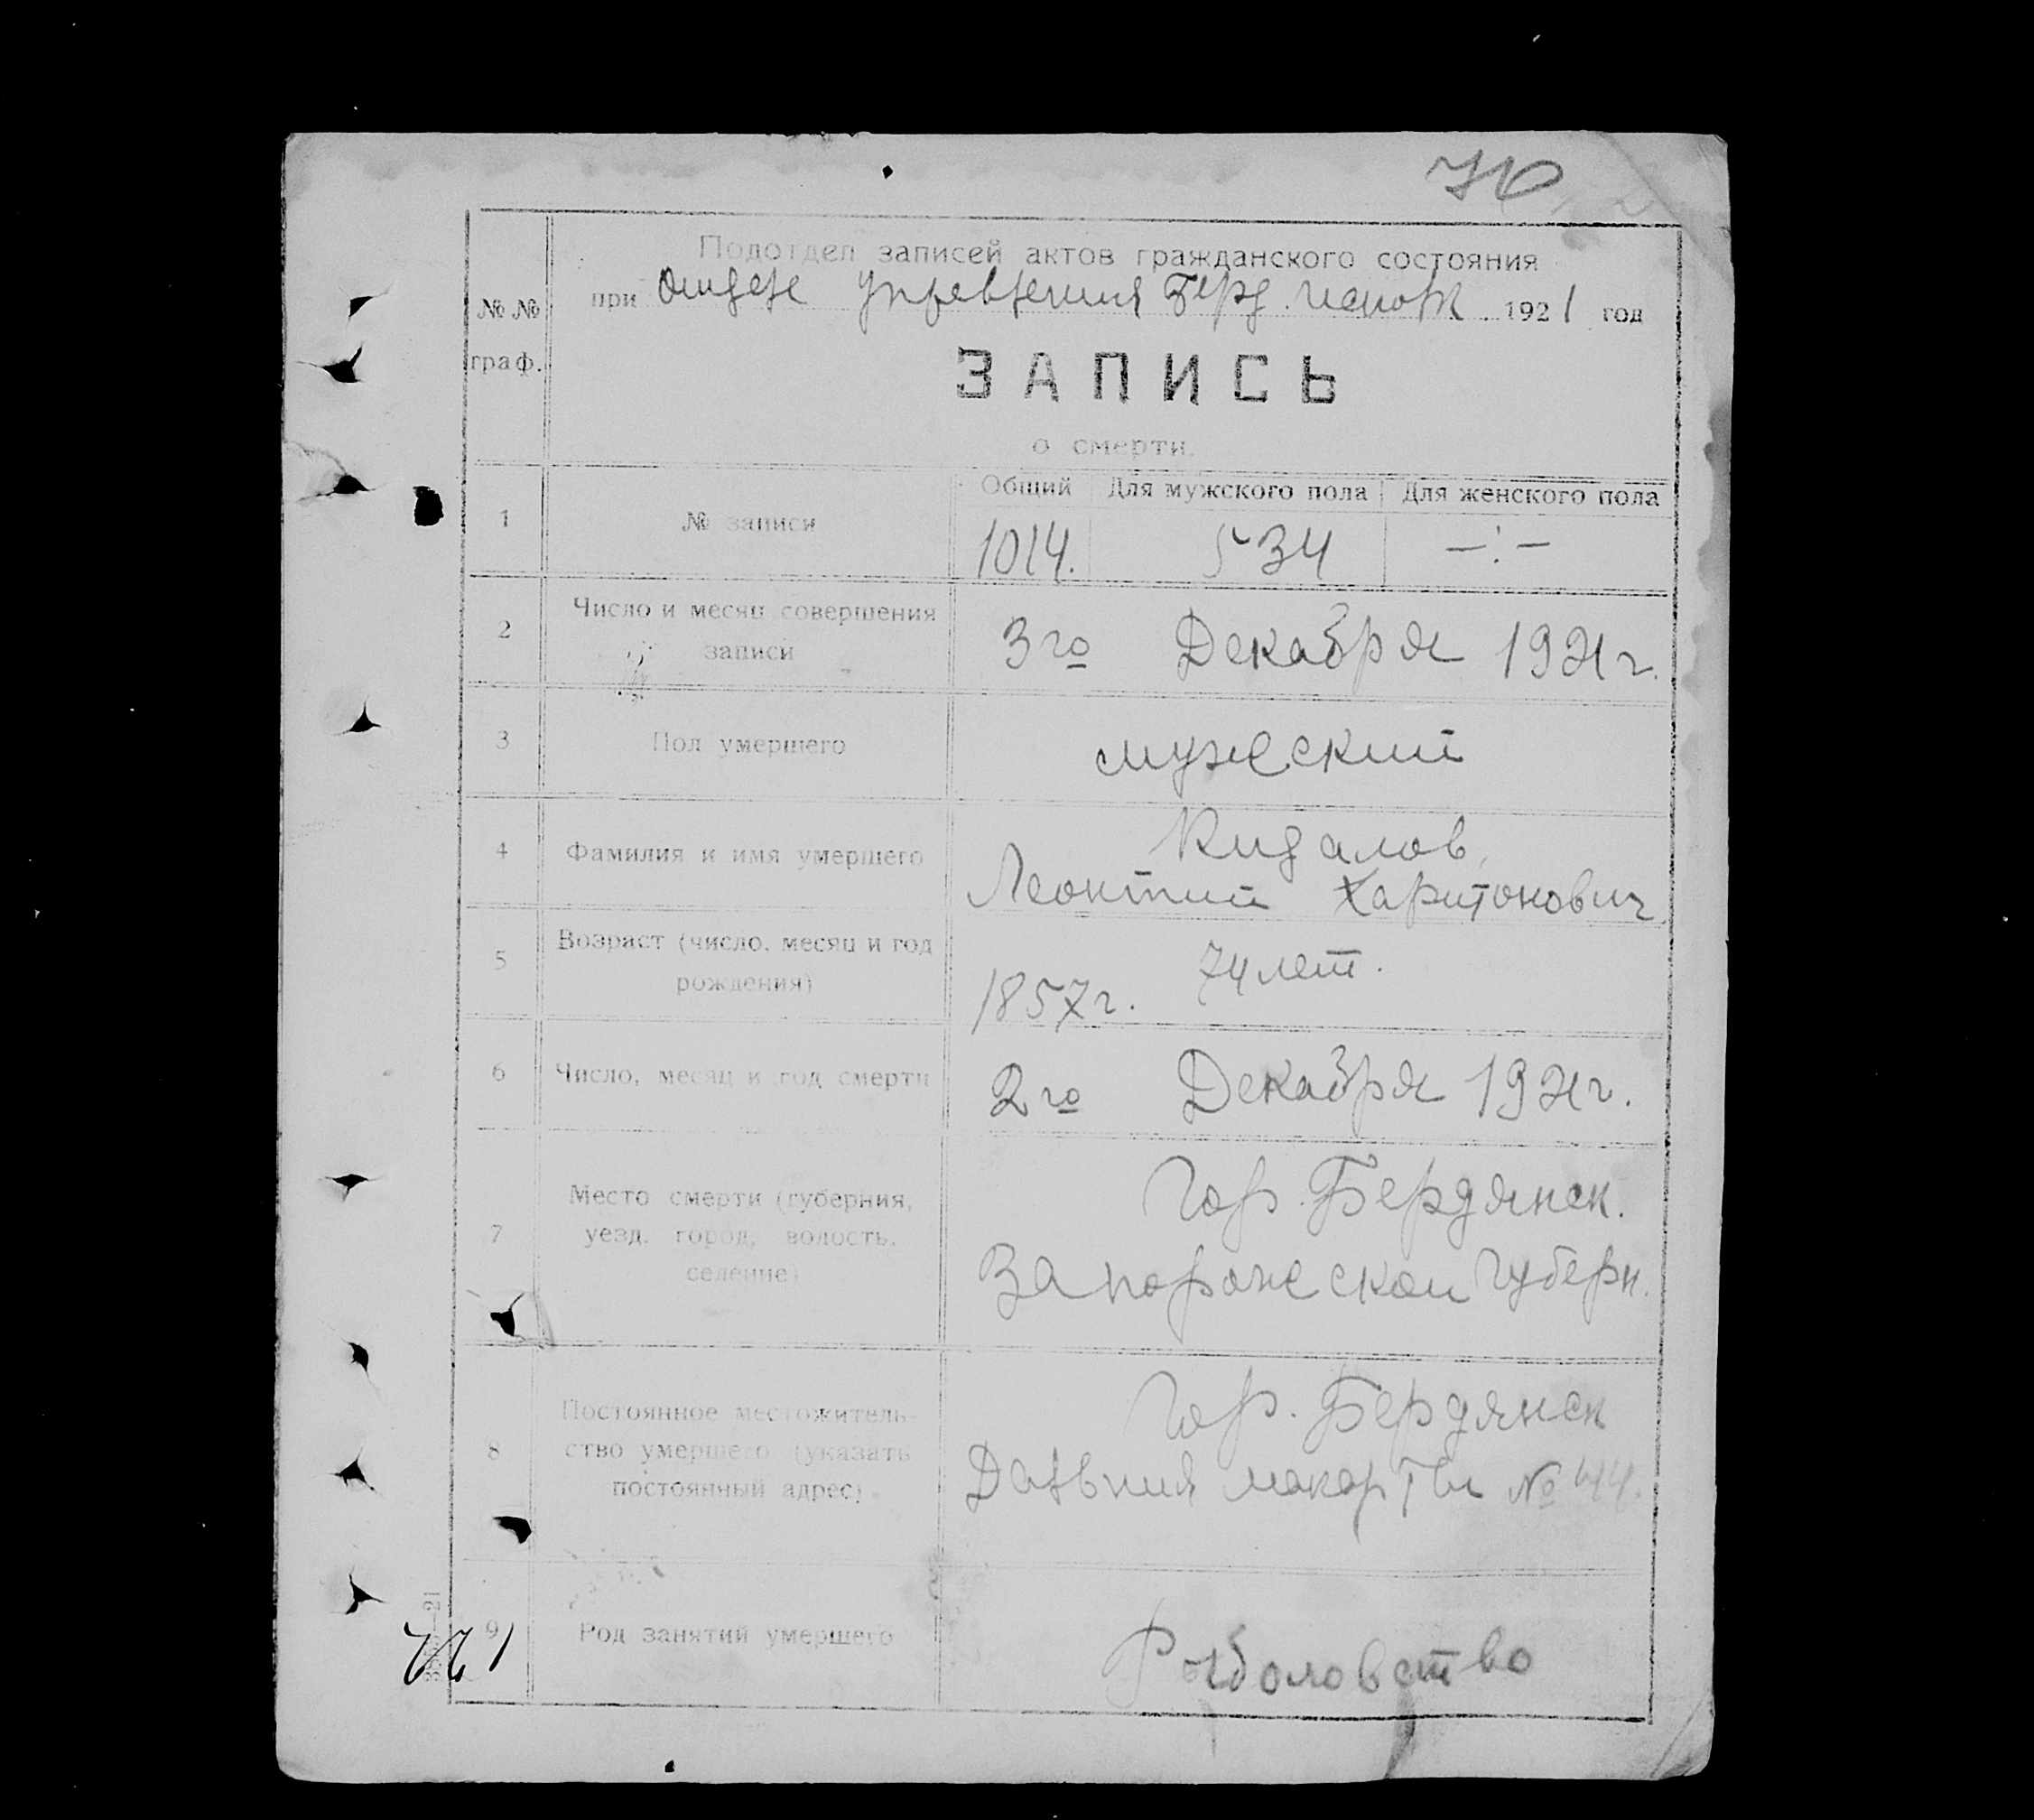 70
Подотдел записей актов гражданского состояния
при отделе управления Берд. исполк. 1921 год
№ №
граф.
ЗАПИСЬ
о смерти.
Общий Для мужского пола Для женского пола
1 № записи 1014. 534 —:—
2 Число и месяц совершения
записи
3го Декабря 1921г.
3 Пол умершего мужеский
4 Фамилия и имя умершего
Кидалов
Леонтий Харитонович
5 Возраст (число, месяц и год
рождения)
74 лет.
1857г.
6 Число, месяц и год смерти 2го Декабря 1921г.
7 Место смерти (губерния,
уезд, город, волость,
селение)
Гор. Бердянск.
Запорожеской Губерн.
8 Постоянное местожитель-
ство умершего (указать
постоянный адрес)
Гор. Бердянск
№ 44.
9 Род занятий умершего Рыболовство